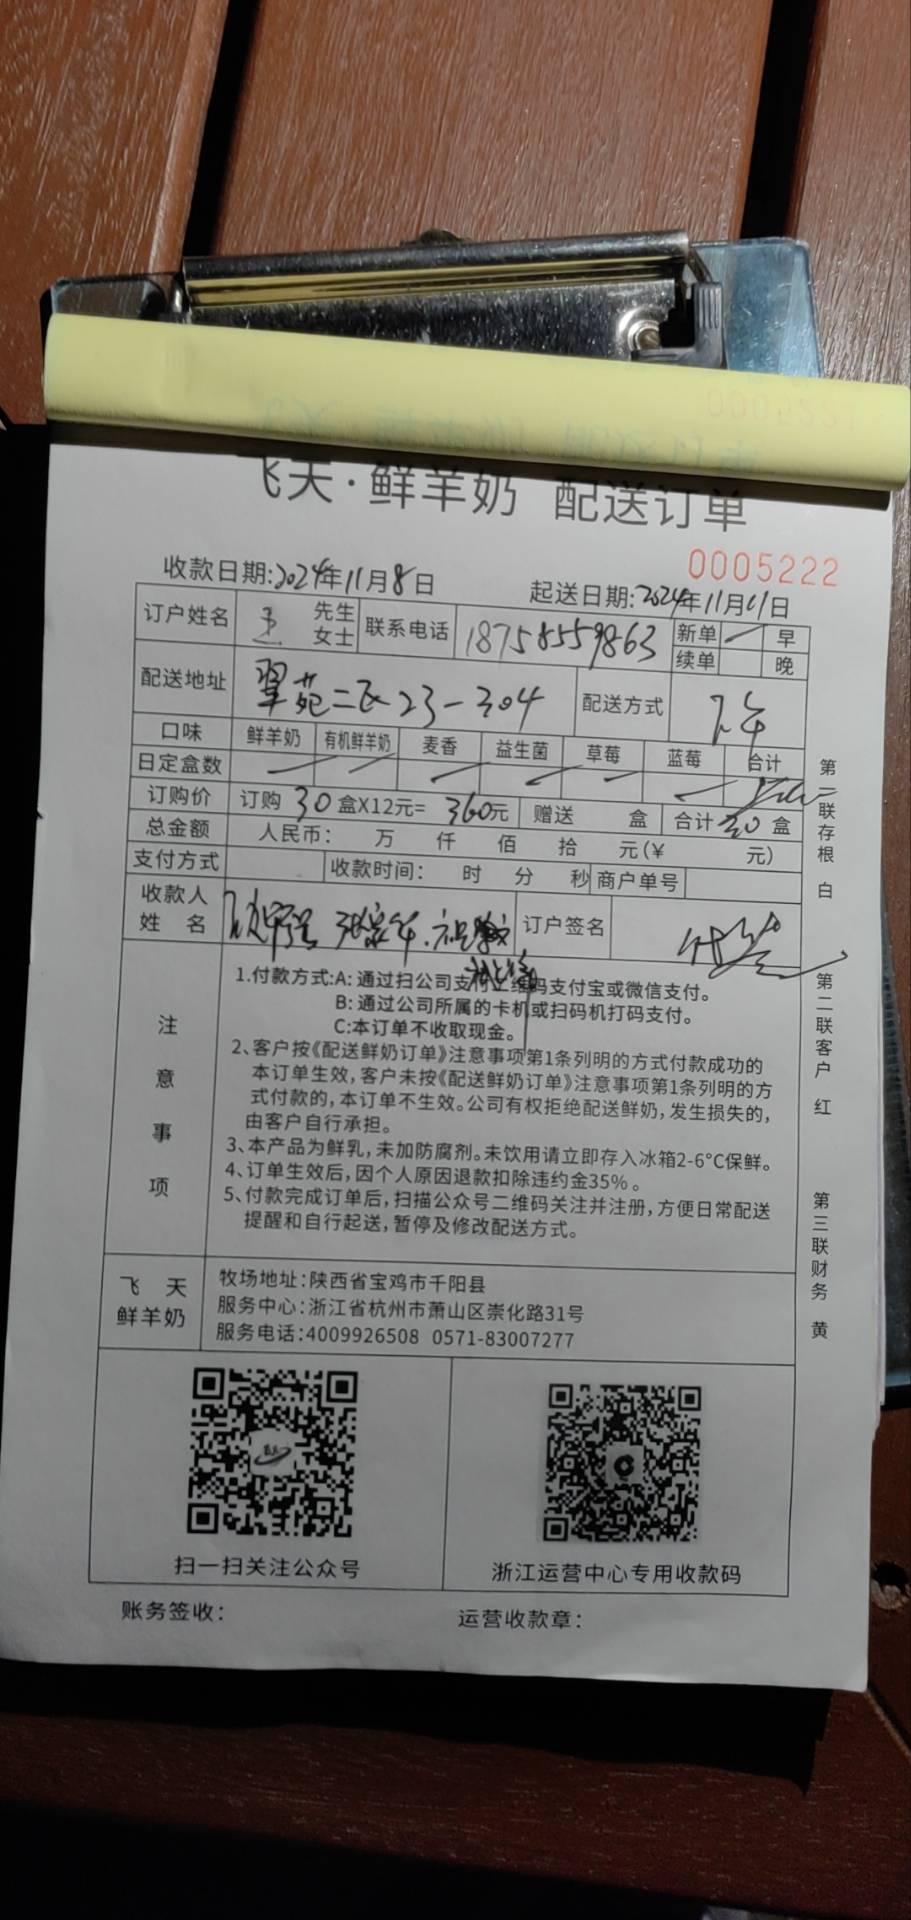 飞天·鲜羊奶 配送订单
0005222
收款日期:2024年11月8日 起送日期:2024年11月11日
订户姓名 王 先生 女士 联系电话 18758559863 新单 早
续单 晚
配送地址 翠苑二区23-304 配送方式
口味 鲜羊奶 有机鲜羊奶 麦香 益生菌 草莓 蓝莓 合计
日定盒数
订购价 订购30盒X12元=360元 赠送 盒 合计30盒
总金额 人民币: 万 仟 佰 拾 元(¥ 元)
支付方式 收款时间: 时 分 秒 商户单号
收款人
姓 名 订户签名 代签
注意事项
1.付款方式:A: 通过扫公司支付二维码支付宝或微信支付。
B: 通过公司所属的卡机或扫码机打码支付。
C:本订单不收取现金。
2、客户按《配送鲜奶订单》注意事项第1条列明的方式付款成功的
本订单生效,客户未按《配送鲜奶订单》注意事项第1条列明的方
式付款的,本订单不生效。公司有权拒绝配送鲜奶,发生损失的,
由客户自行承担。
3、本产品为鲜乳,未加防腐剂。未饮用请立即存入冰箱2-6°C保鲜。
4、订单生效后,因个人原因退款扣除违约金35%。
5、付款完成订单后,扫描公众号二维码关注并注册,方便日常配送
提醒和自行起送,暂停及修改配送方式。
飞 天
鲜羊奶
牧场地址:陕西省宝鸡市千阳县
服务中心:浙江省杭州市萧山区崇化路31号
服务电话:4009926508 0571-83007277
扫一扫关注公众号 浙江运营中心专用收款码
账务签收: 运营收款章:
第一联存根 白
第二联客户 红
第三联财务 黄